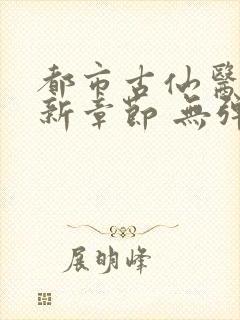 都市古仙醫
新章節 無彈
展明峰